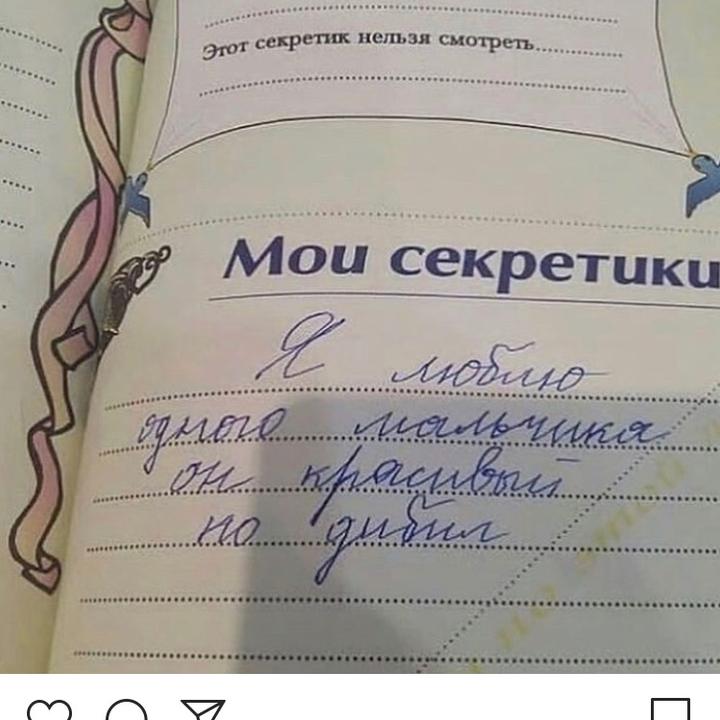 Этот секретик нельзя смотреть
Мои секретики
Я люблю
одного мальчика
он красивый
но дибил